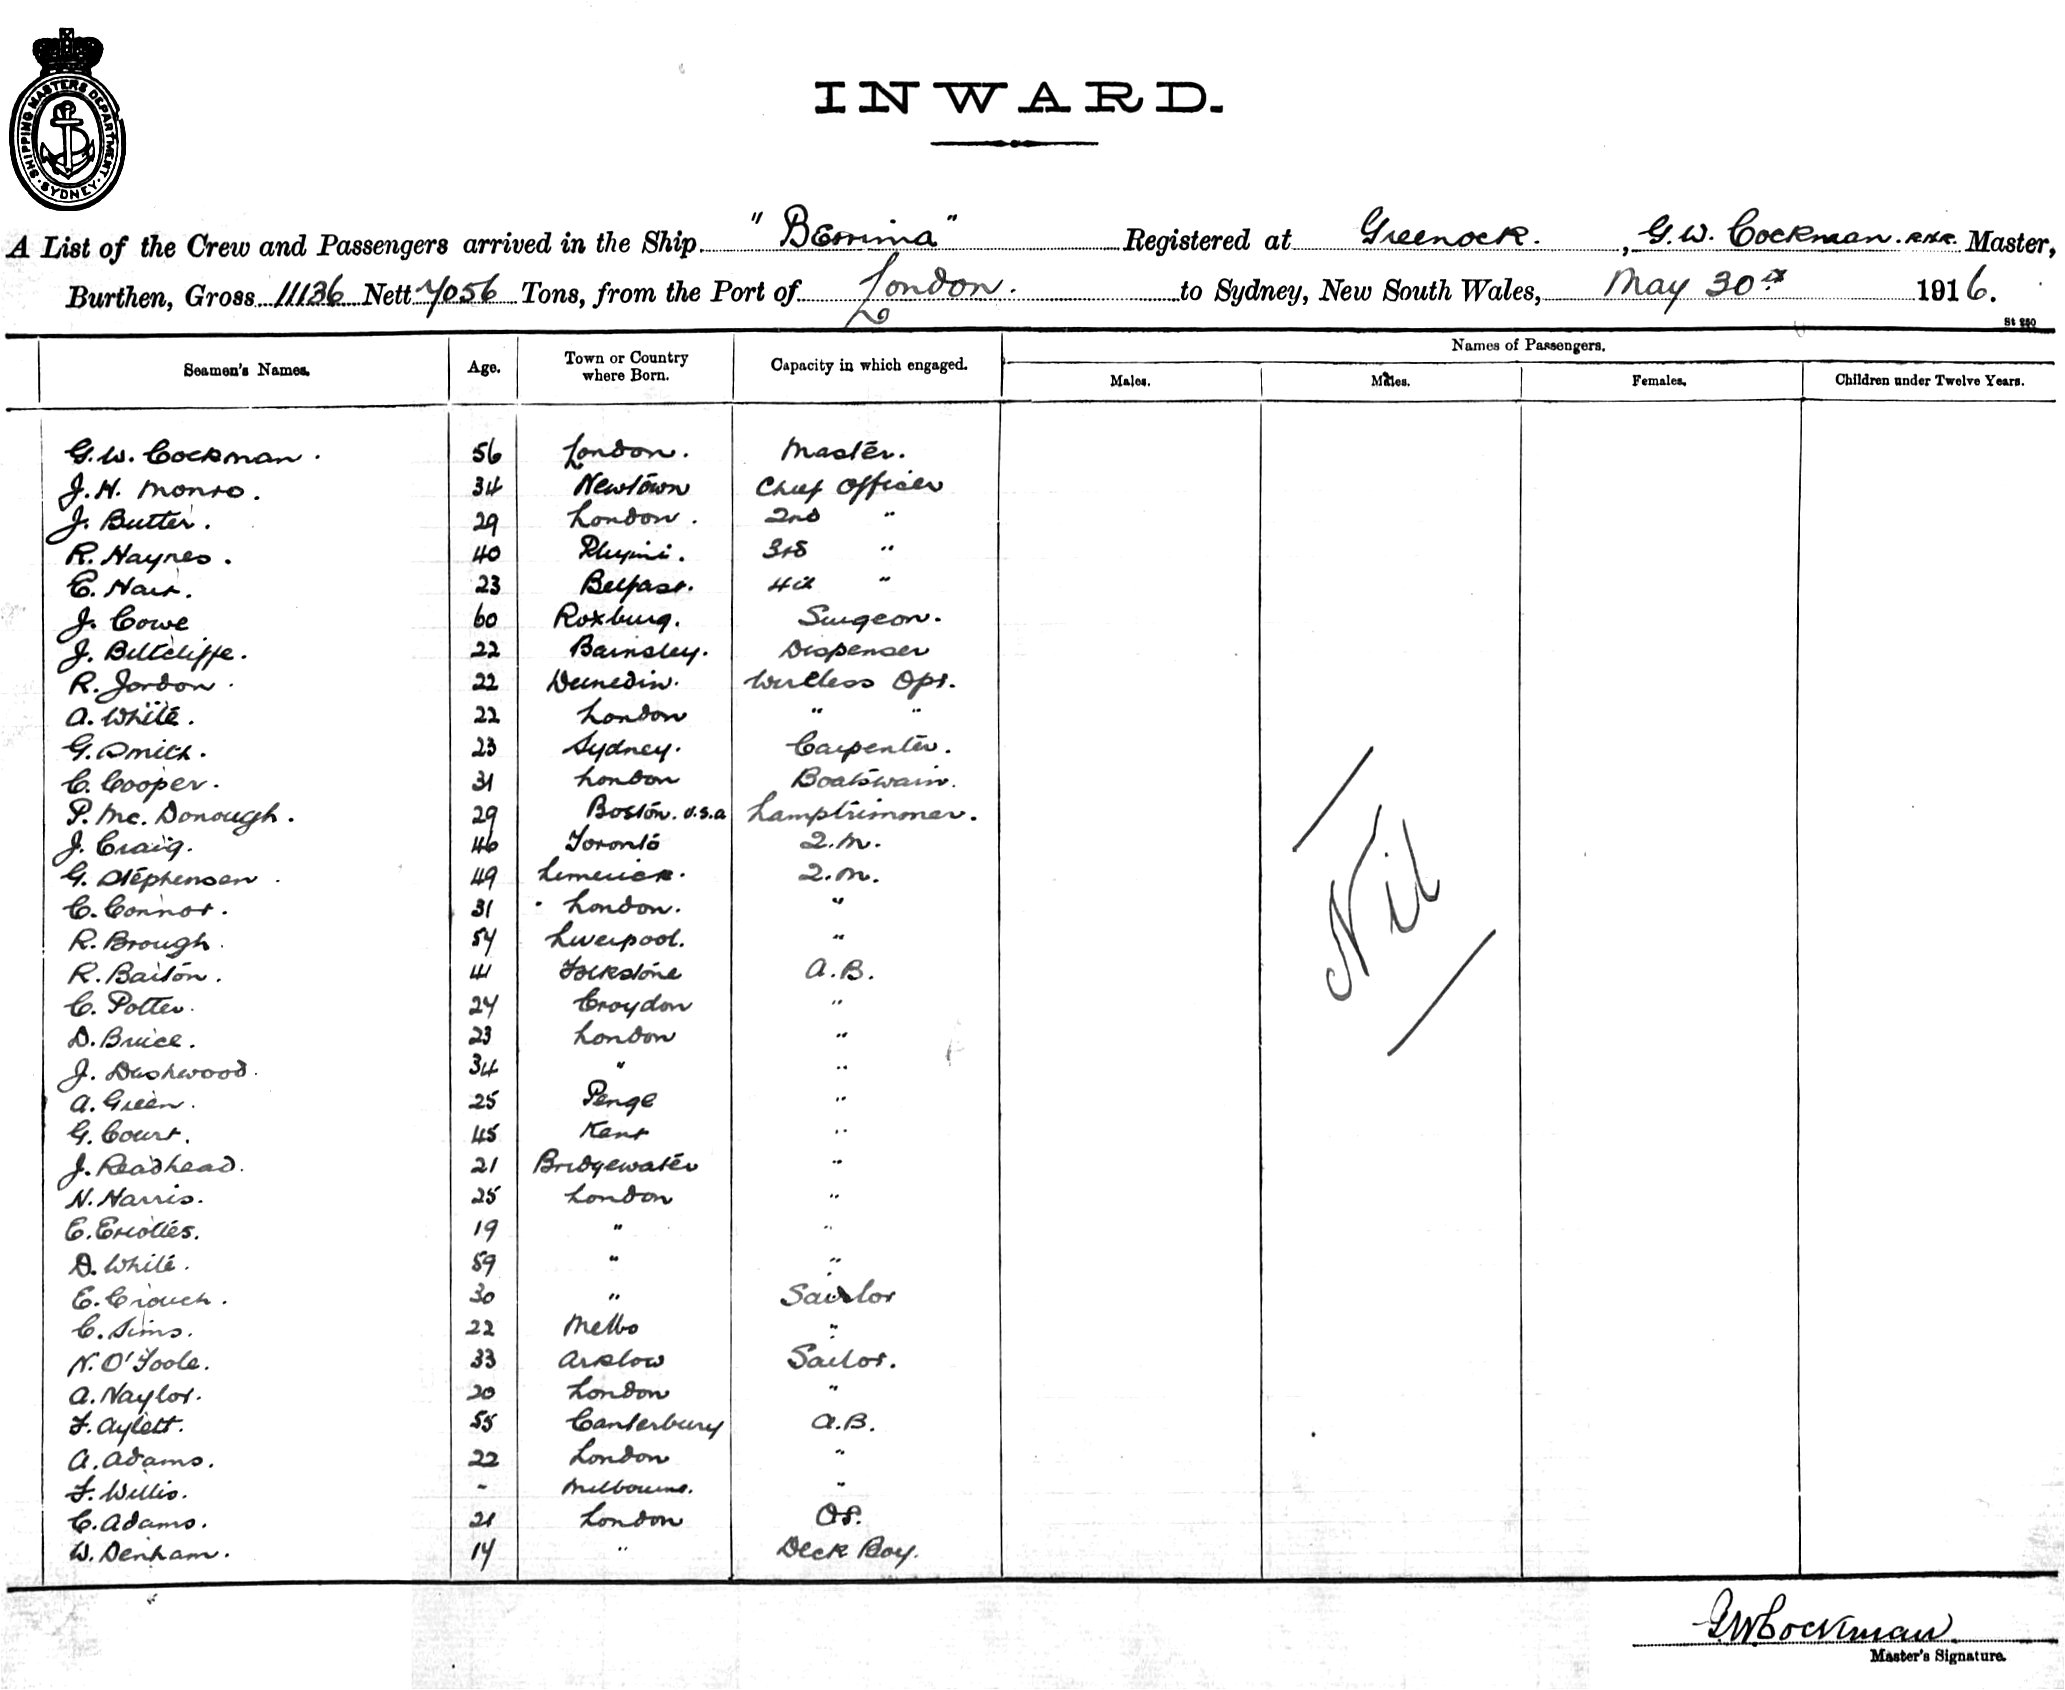 SHIPPING MASTERS DEPARTMENT · SYDNEY ·
INWARD.
A List of the Crew and Passengers arrived in the Ship "Berrima" Registered at Greenock. , G. W. Cockman. R.N.R. Master,
Burthen, Gross 11136 Nett 7056 Tons, from the Port of London. to Sydney, New South Wales, May 30th 1916.
St 250
Seamen's Names. Age. Town or Country where Born. Capacity in which engaged. Names of Passengers.
Males. Males. Females. Children under Twelve Years.
G. W. Cockman. 56 London. Master.
J. H. Monro. 34 Newtown Chief Officer
J. Butter. 29 London. 2nd "
R. Haynes. 40 3rd "
E. Hair. 23 Belfast. 4th "
J. Cowe 60 Roxburg. Surgeon.
J. Biltcliffe. 22 Barnsley. Dispenser
R. Jordon. 22 Dunedin. Wireless Opr.
A. White. 22 London " "
G. Smith. 23 Sydney. Carpenter.
C. Cooper. 31 London Boatswain.
P. Mc. Donough. 29 Boston. U.S.A Lamptrimmer.
J. Craig. 46 Toronto Q.M.
G. Stephensen. 49 Limerick. Q.M.
C. Connor. 31 London. "
R. Brough. 54 Liverpool. "
R. Baiton. 41 Folkstone A.B.
C. Potter. 24 Croydon "
D. Bruce. 23 London "
J. Dashwood. 34 " "
A. Green. 25 Penge "
G. Court. 45 Kent "
J. Readhead. 21 Bridgewater "
H. Harris. 25 London "
E. 19 " "
D. White. 59 " "
E. Crouch. 30 " Sailor
C. Sims. 22 Melbo "
N. O'Toole. 33 Arklow Sailor.
A. Naylor. 20 London "
F. Aylett. 55 Canterbury A.B.
A. Adams. 22 London "
F. Willis. - Melbourne. "
C. Adams. 21 London O.S.
W. Denham. 14 " Deck Boy.
Nil
G W Cockman
Master's Signature.